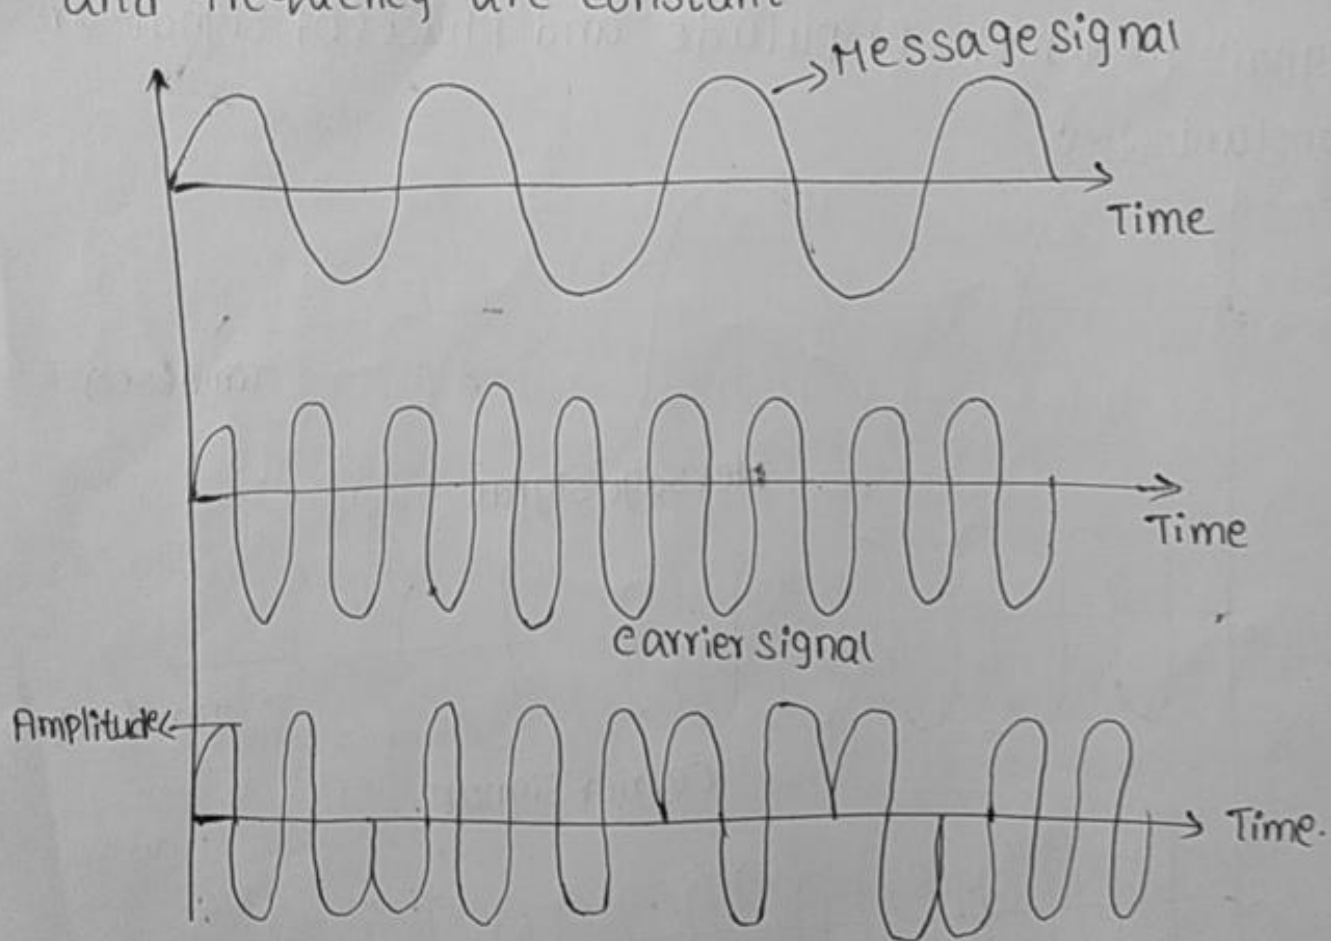 and frequency are constant
Message signal
Time
Time
Carrier signal
Amplitude
Time.